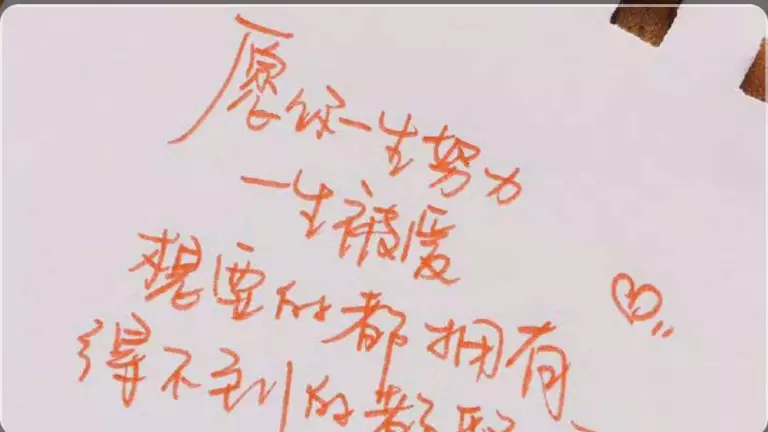 愿你一生努力
一生被爱
想要的都拥有
得不到的都